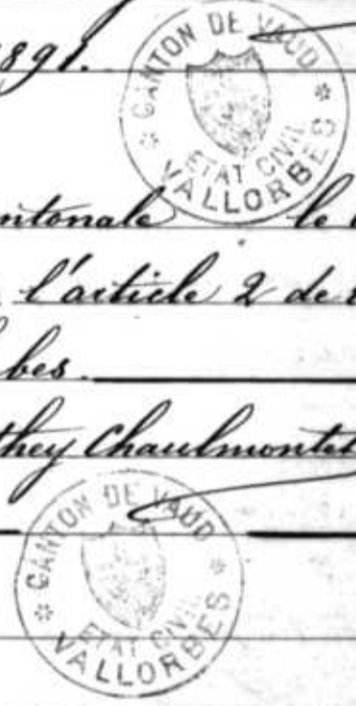 1891.
CANTON DE VAUD
ETAT CIVIL
VALLORBES
ntonale le
l'article 2 de
bes.
they Chaulmontet
CANTON DE VAUD
ETAT CIVIL
VALLORBES